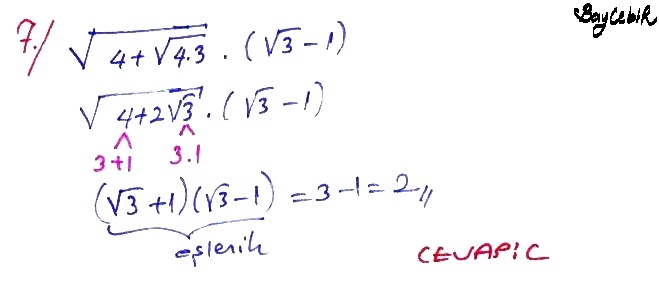 BayCebiR
7./ √(4+√4.3) . (√3-1)
√(4+2√3) . (√3-1)
3+1 3.1
(√3+1)(√3-1) = 3-1 = 2,,
eşlenik
CEVAP:C